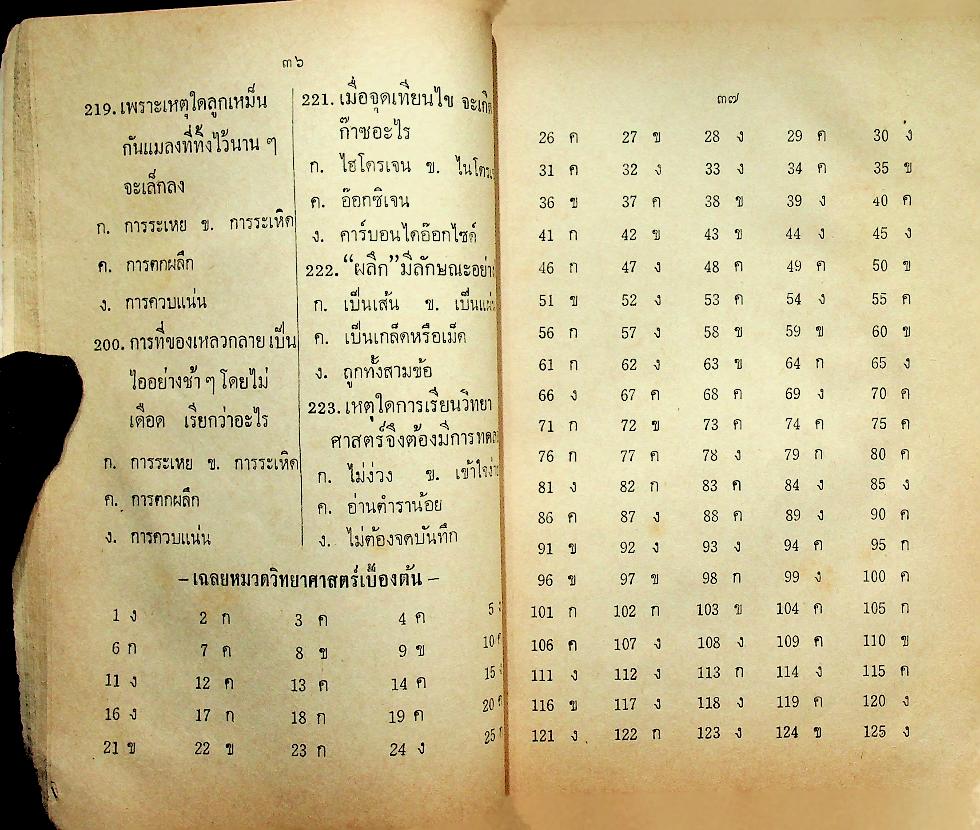 ๓๖
219. เพราะเหตุใดลูกเหม็น
กันแมลงที่ทิ้งไว้นาน ๆ
จะเล็กลง
ก. การระเหย ข. การระเหิด
ค. การตกผลึก
ง. การควบแน่น
200. การที่ของเหลวกลายเป็น
ไออย่างช้า ๆ โดยไม่
เดือด เรียกว่าอะไร
ก. การระเหย ข. การระเหิด
ค. การตกผลึก
ง. การควบแน่น
221. เมื่อจุดเทียนไข จะเกิด
ก๊าซอะไร
ก. ไฮโดรเจน ข.
ค. อ๊อกซิเจน
ง. คาร์บอนไดอ๊อกไซด์
222. “ผลึก” มีลักษณะ
ก. เป็นเส้น ข.
ค. เป็นเกล็ดหรือเม็ด
ง. ถูกทั้งสามข้อ
223. เหตุใดการเรียนวิทยา
ศาสตร์จึงต้องมีการ
ก. ไม่ง่วง ข.
ค. อ่านตำราน้อย
ง. ไม่ต้องจดบันทึก
– เฉลยหมวดวิทยาศาสตร์เบื้องต้น –
1 ง 2 ก 3 ค 4 ค 5
6 ก 7 ค 8 ข 9 ข 10
11 ง 12 ค 13 ค 14 ค 15
16 ง 17 ก 18 ก 19 ค 20
21 ข 22 ข 23 ก 24 ง 25
๓๗
26 ค 27 ข 28 ง 29 ค 30 ง
31 ค 32 ง 33 ง 34 ค 35 ข
36 ข 37 ค 38 ข 39 ง 40 ค
41 ก 42 ข 43 ข 44 ง 45 ง
46 ก 47 ง 48 ค 49 ค 50 ข
51 ข 52 ง 53 ค 54 ง 55 ค
56 ก 57 ง 58 ข 59 ข 60 ข
61 ก 62 ง 63 ข 64 ก 65 ง
66 ง 67 ค 68 ค 69 ง 70 ค
71 ก 72 ข 73 ค 74 ค 75 ค
76 ก 77 ค 78 ง 79 ก 80 ค
81 ง 82 ก 83 ค 84 ง 85 ง
86 ค 87 ง 88 ค 89 ง 90 ค
91 ข 92 ง 93 ง 94 ค 95 ก
96 ข 97 ข 98 ก 99 ง 100 ค
101 ก 102 ก 103 ข 104 ค 105 ก
106 ค 107 ง 108 ง 109 ค 110 ข
111 ง 112 ง 113 ก 114 ง 115 ค
116 ข 117 ง 118 ง 119 ค 120 ง
121 ง 122 ก 123 ง 124 ข 125 ง